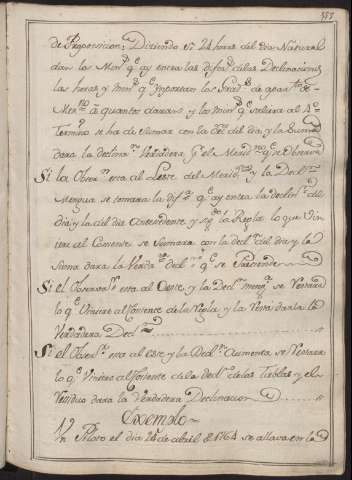 de Proporcion: Diciendo si 24 horas del dia Natural
dan los Mins. q.e ay entre las difas. de las Declinaciones
las horas y mins. q.e importan los Grads. de apart.to de
Mer.no a quantos daran; y los min.s q.e saliere al 4.o
Termino se ha de sumar con la Dec.on del dia y la Suma
dara la declina.on Verdadera p.a el Merid.no q.e se Observa
Si la Obser.on esta al Leste del Merid.no y la Decl.on
Mengua se tomara la dif.a q.e ay entre la declin.on del
dia y la del dia Antesedente y sg.n la Regla lo que Vi-
niere al Cosiente se Sumara con la decl.on del dia y la
Suma dara la Verd.a decl.on q.e se Pretende
Si el Observor. esta al Oeste y la decl.on meng.a se Restara
lo q.e Viniere al Cosiente de la Regla y la Resta dara la
Verdadera Decl.on
Si el Obser.or esta al este y la Decl.on Aumenta se Restara
lo q.e Viniere al Cosiente de la decl.on de las Tablas y el
Residuo dara la Verdadera Declinacion
Exemplo
Un Piloto el dia 25 de abril de 1764 se allava en la